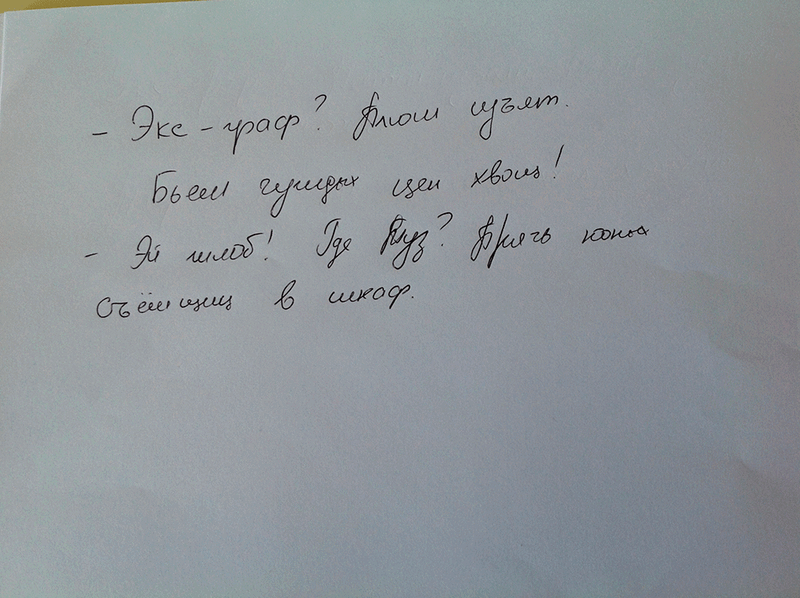 - Экс-граф? Плюш изъят.
Бьём чуждый цен хвощ!
- Эй жлоб! Где туз? Прячь юных
съёмщиц в шкаф.